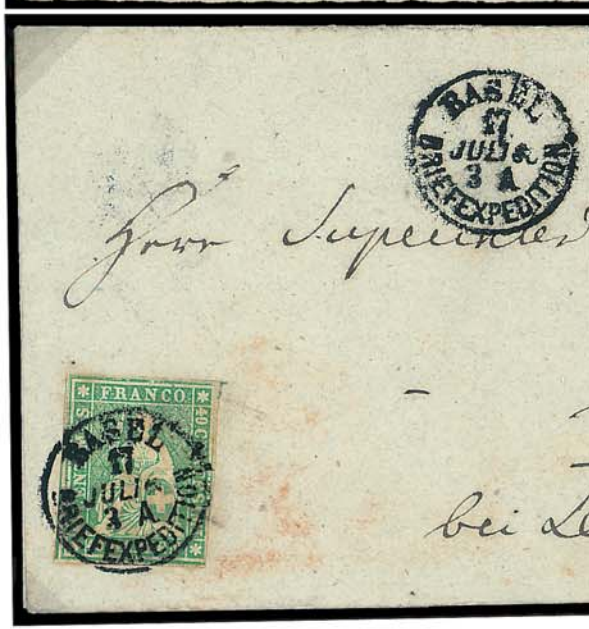 BASEL
17
JULI
3 A
BRIEFEXPEDITION
Herr
FRANCO
40
BASEL
17
JULI
3 A
BRIEFEXPEDITION
bei